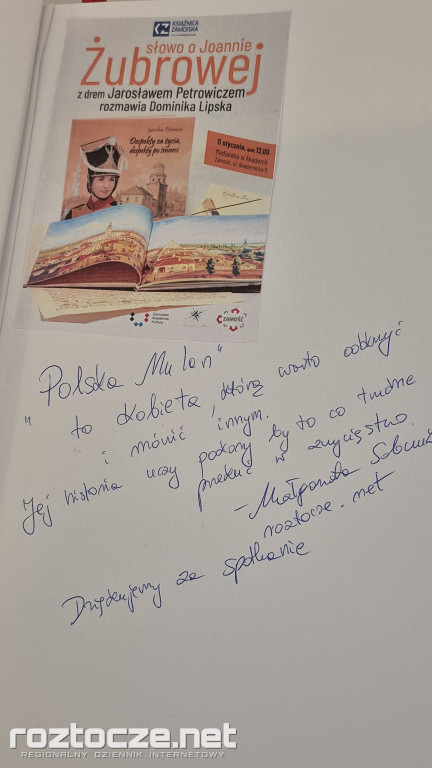 KSIĄŻNICA
ZAMOJSKA
słowo o Joannie
Żubrowej
z drem Jarosławem Petrowiczem
rozmawia Dominika Lipska
Jarosław Petrowicz
Despekty za życia,
despekty po śmierci
11 stycznia, godz 13.00
Mediateka w Akademii
Zamość, ul. Akademicka 8
Zamojska
Akademia
Kultury
ZAMOŚĆ
"Polska Mulan"
to kobieta, którą warto odkryć
i mówić innym.
Jej historia uczy pokory by to co trudne
przekuć w zwycięstwo.
- Małgorzata
roztocze.net
Dziękujemy za spotkanie
roztocze.net
REGIONALNY DZIENNIK INTERNETOWY